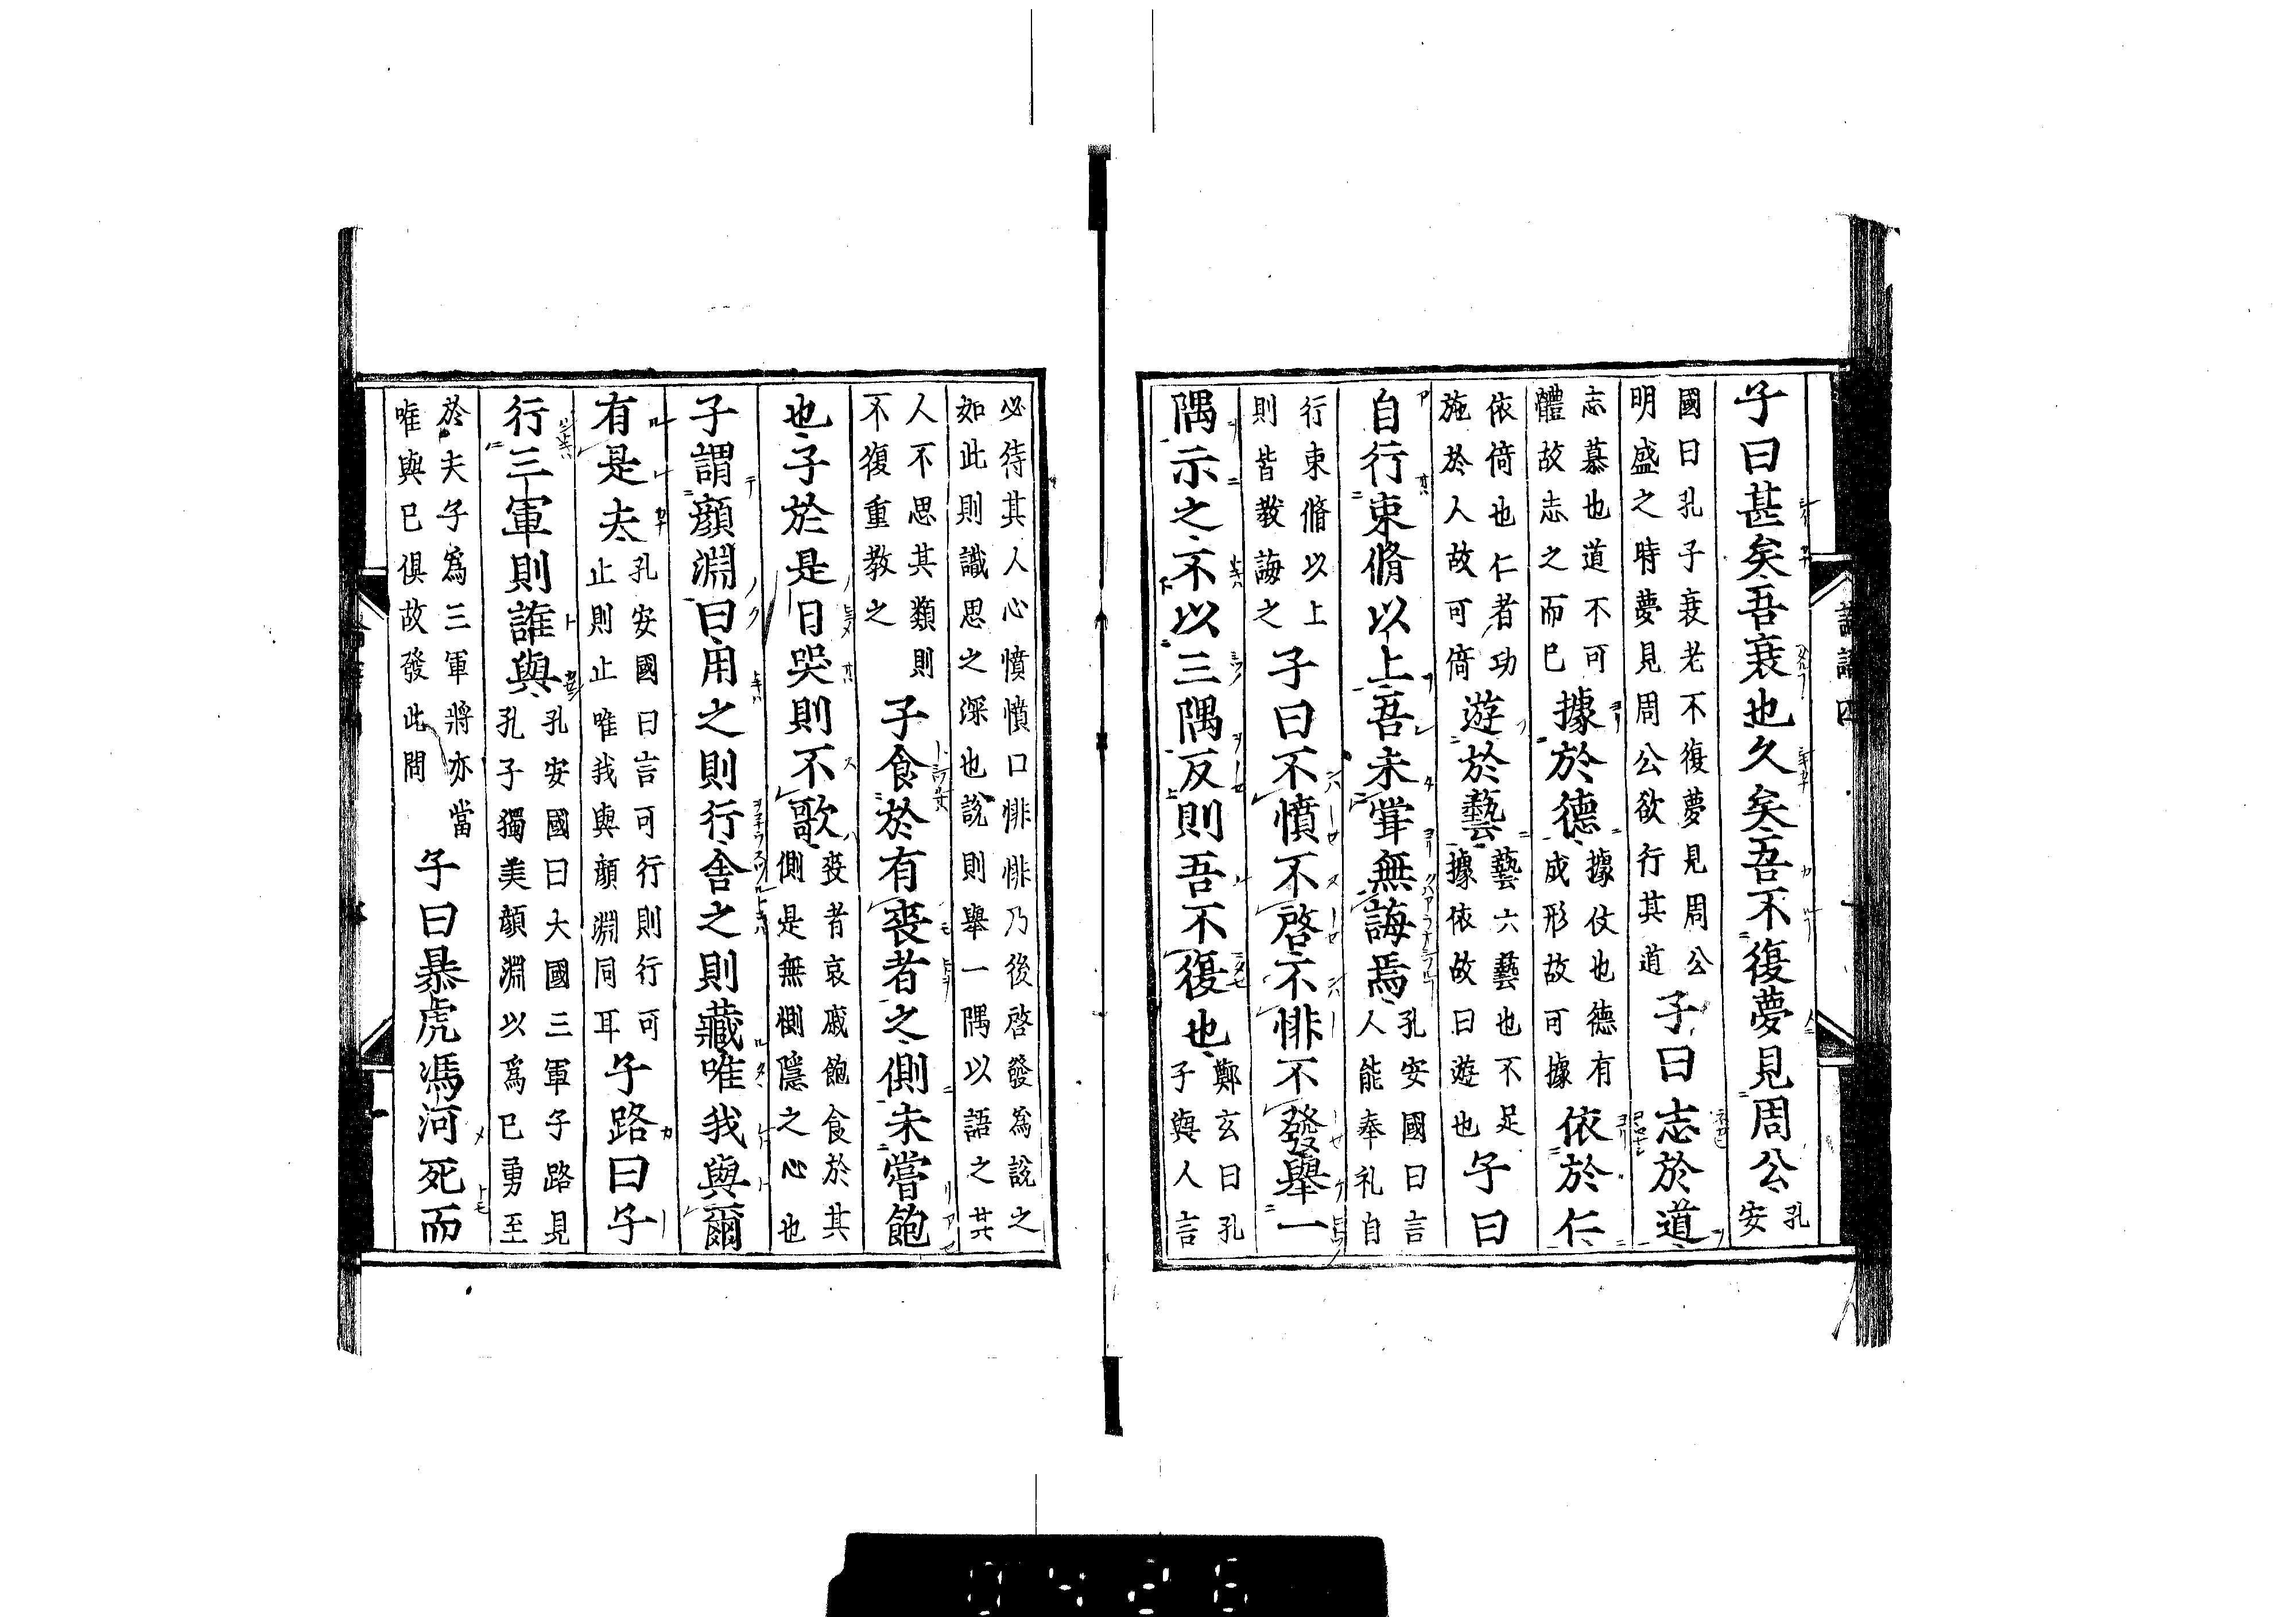 子曰甚矣吾衰也久矣吾不復夢見周公孔安
國曰孔子衰老不復夢見周公明盛之時夢見周公欲行其道子曰志於道
志慕也道不可體故志之而已據於德據仗也德有成形故可據依於仁
依倚也仁者功施於人故可倚遊於藝藝六藝也不足據依故曰遊也子曰
自行束脩以上吾未甞無誨焉孔安國曰言人能奉礼自
行束脩以上則皆教誨之子曰不憤不啓不悱不發舉一
隅示之不以三隅反則吾不復也鄭玄曰孔子與人言
必待其人心憤憤口悱悱乃後啓發爲說之如此則識思之深也說則舉一隅以語之其
人不思其類則不復重教之子食於有喪者之側未嘗飽
也子於是日哭則不歌喪者哀戚飽食於其側是無惻隱之心也
子謂顔淵曰用之則行舎之則藏唯我與爾
有是夫孔安國曰言可行則行可止則止唯我與顔淵同耳子路曰子
行三軍則誰與孔安國曰大國三軍子路見孔子獨美顔淵以爲已勇至
於夫子爲三軍將亦當唯與已俱故發此問子曰暴虎馮河死而
論語四
0426